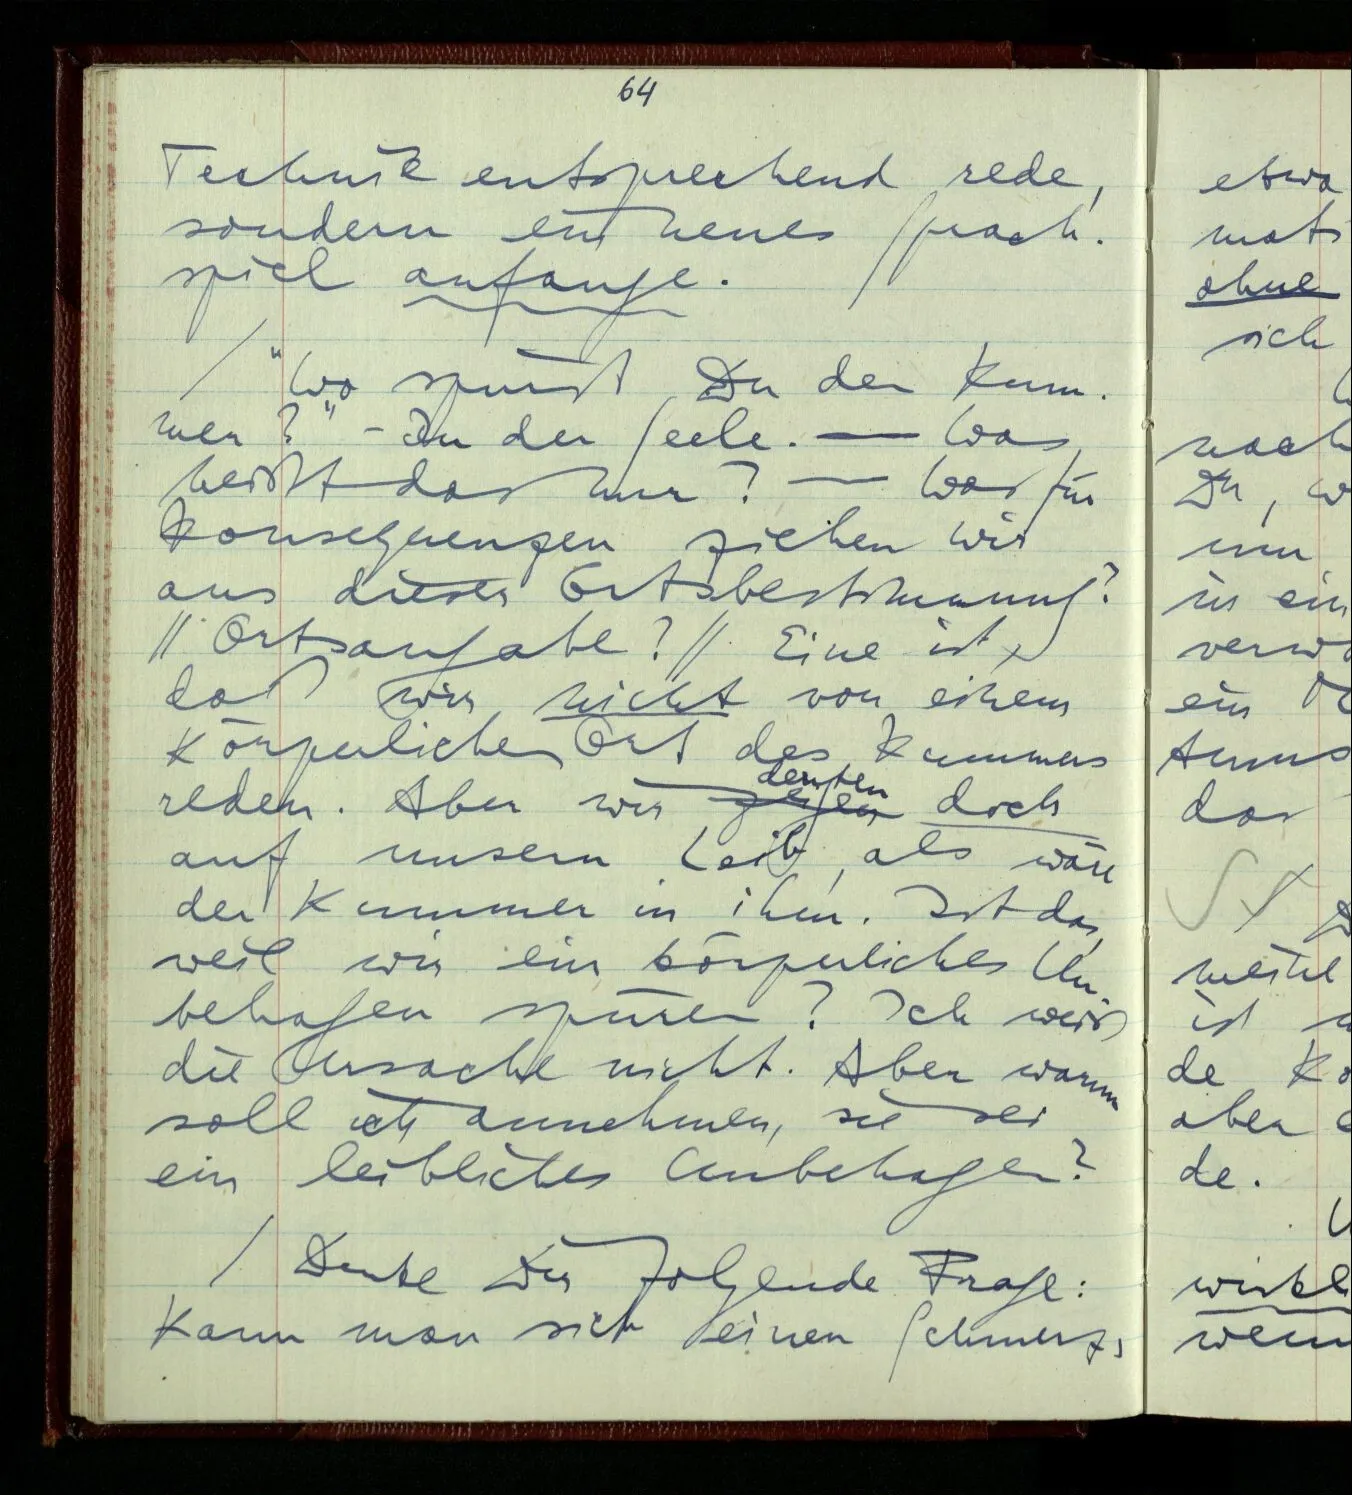 64
Technik entsprechend rede,
sondern ein neues Sprach-
spiel anfange.
/ "Wo spürst Du den Kum-
mer?" – In der Seele. — Was
heißt das nur? — Was für
Konsequenzen ziehen wir
aus dieser Ortsbestimmung?
// Ortsangabe? // Eine ist,
daß wir nicht von einem
körperlichen Ort des Kummers
reden. Aber wir zeigen deuten doch
auf unsern Leib, als wäre
der Kummer in ihm. Ist das,
weil wir ein körperliches Un-
behagen spüren? Ich weiß
die Ursache nicht. Aber warum
soll ich annehmen, sie sei
ein leibliches Unbehagen?
/ Denke Dir folgende Frage:
Kann man sich einen Schmerz,
etwa
ohne
sich
nach
Du, w
nun
in ein
verw
ein
das
ist
de Ko
aber
de.